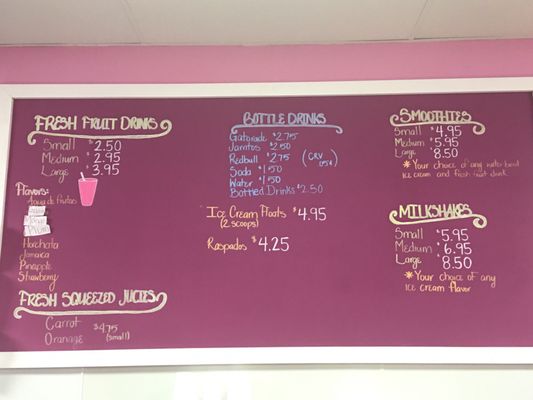 FRESH FRUIT DRINKS
Small $2.50
Medium $2.95
Large $3.95
Flavors:
Agua de frutas
Horchata
Jamaica
Pineapple
Strawberry
FRESH SQUEEZED JUICES
Carrot $4.75
Orange (small)
BOTTLE DRINKS
Gatorade $2.75
Jarritos $2.50
Redbull $2.75 (CRV .05¢)
Soda $1.50
Water $1.50
Bottled Drinks $2.50
Ice Cream Floats $4.95
(2 scoops)
Raspados $4.25
SMOOTHIES
Small $4.95
Medium $5.95
Large $8.50
*Your choice of any water based
ice cream and fresh fruit drink
MILKSHAKES
Small $5.95
Medium $6.95
Large $8.50
*Your choice of any
ice cream flavor